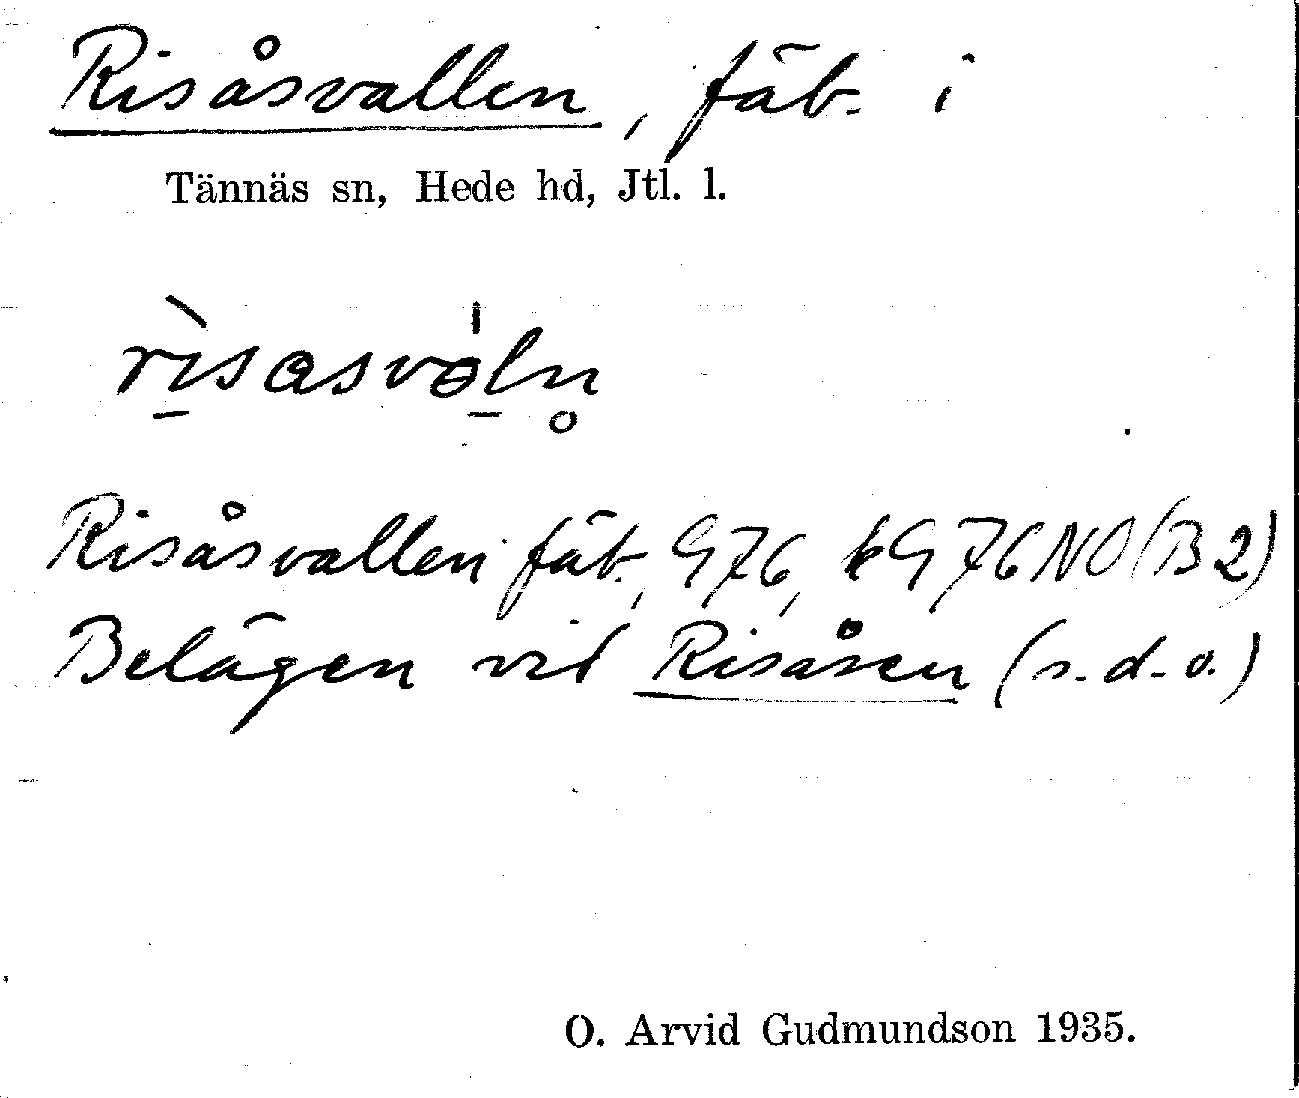 Risåsvallen, fäb. i
Tännäs sn, Hede hd, Jtl. l.
rìsasvaln̥
Risåsvallen fäb., G76, kG76NO(B2)
Belägen vid Risåsen (s.d.o.)
O. Arvid Gudmundson 1935.